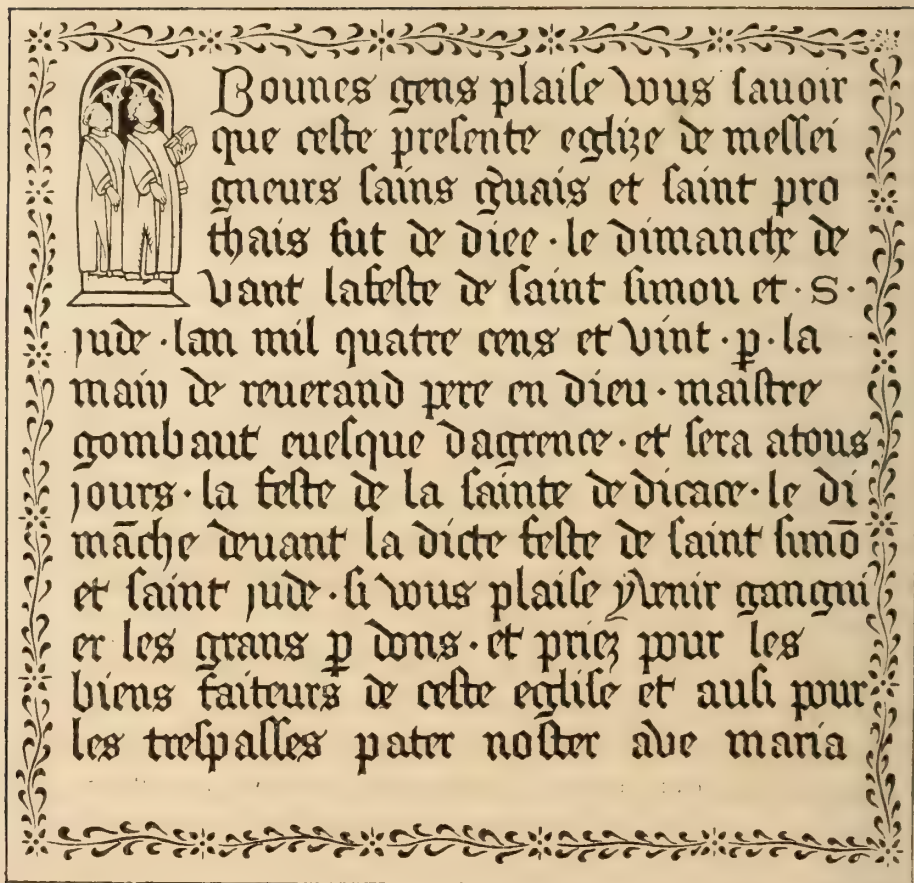 Bounes gens plaise vous sauoir
que ceste presente eglize de messei
gneurs sains guais et saint pro
thais fut de diee · le dimanche de
vant lafeste de saint simon et · s ·
jude · lan mil quatre cens et vint · ꝑ · la
main de reuerand pere en dieu · maistre
gombaut euesque dagrence · et sera atous
jours · la feste de la sainte de dicace · le di
māche deuant la dicte feste de saint simō
et saint jude · si vous plaise y venir gangni
er les grans ꝑ dons · et priez pour les
biens faiteurs de ceste eglise et ausi pour
les trespasses pater noster ave maria